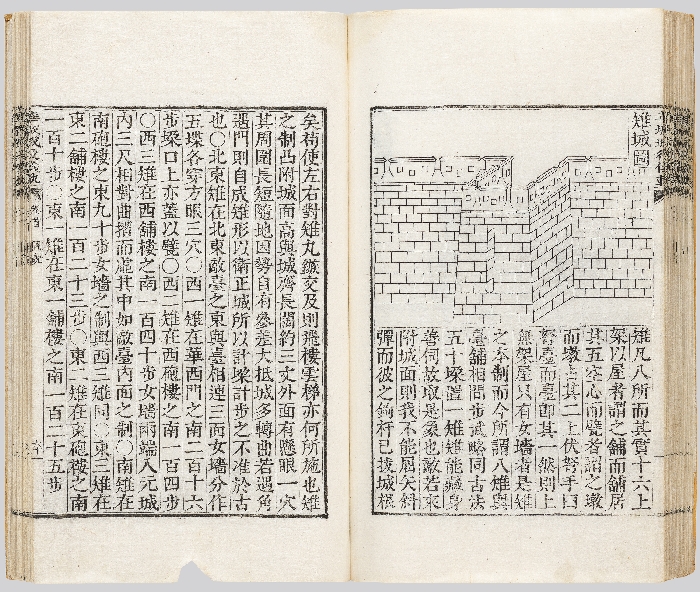 雉城圖
雉凡八所而其實十六上
架以屋者謂之舖而舖居
其五空心而甓者謂之墩
而墩占其二上伏弩手曰
弩臺而臺卽其一然則上
無架屋只有女墻者是雉
之本制而今所謂八雉與
臺舖相間步武略同古法
五十垜置一雉雉能藏身
善伺故取是象也敵若來
附城面則我不能屈矢斜
彈而彼之鉤杆已拔城根
矣苟使左右對雉丸鏃交及則飛樓雲梯亦何所施也雉
之制凸附城而高與城齊長闊約三丈外面有懸眼一穴
其周圍長短隨地因勢自有參差大抵城多轉曲若遇角
遇門則自成雉形以衛正城所以計垜計步之不准於古
也○北東雉在北東敵臺之東與臺相連三面女墻分作
五堞各穿方眼三穴○西一雉在華西門之南二百十六
步垜口上亦蓋以甓○西二雉在西砲樓之南一百四步
○西三雉在西舖樓之南一百四十步女墻兩端入元城
內三尺相對曲摺而虛其中如敵臺內面之制○南雉在
南砲樓之東九十步女墻之制與西三雉同○東三雉在
東二舖樓之南一百二十三步○東二雉在東砲樓之南
一百十步○東一雉在東一舖樓之南一百二十五步